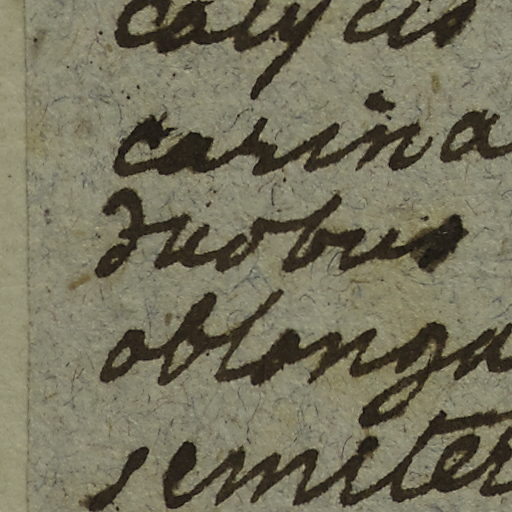 calycis
carina
duobus
oblonga
semiter